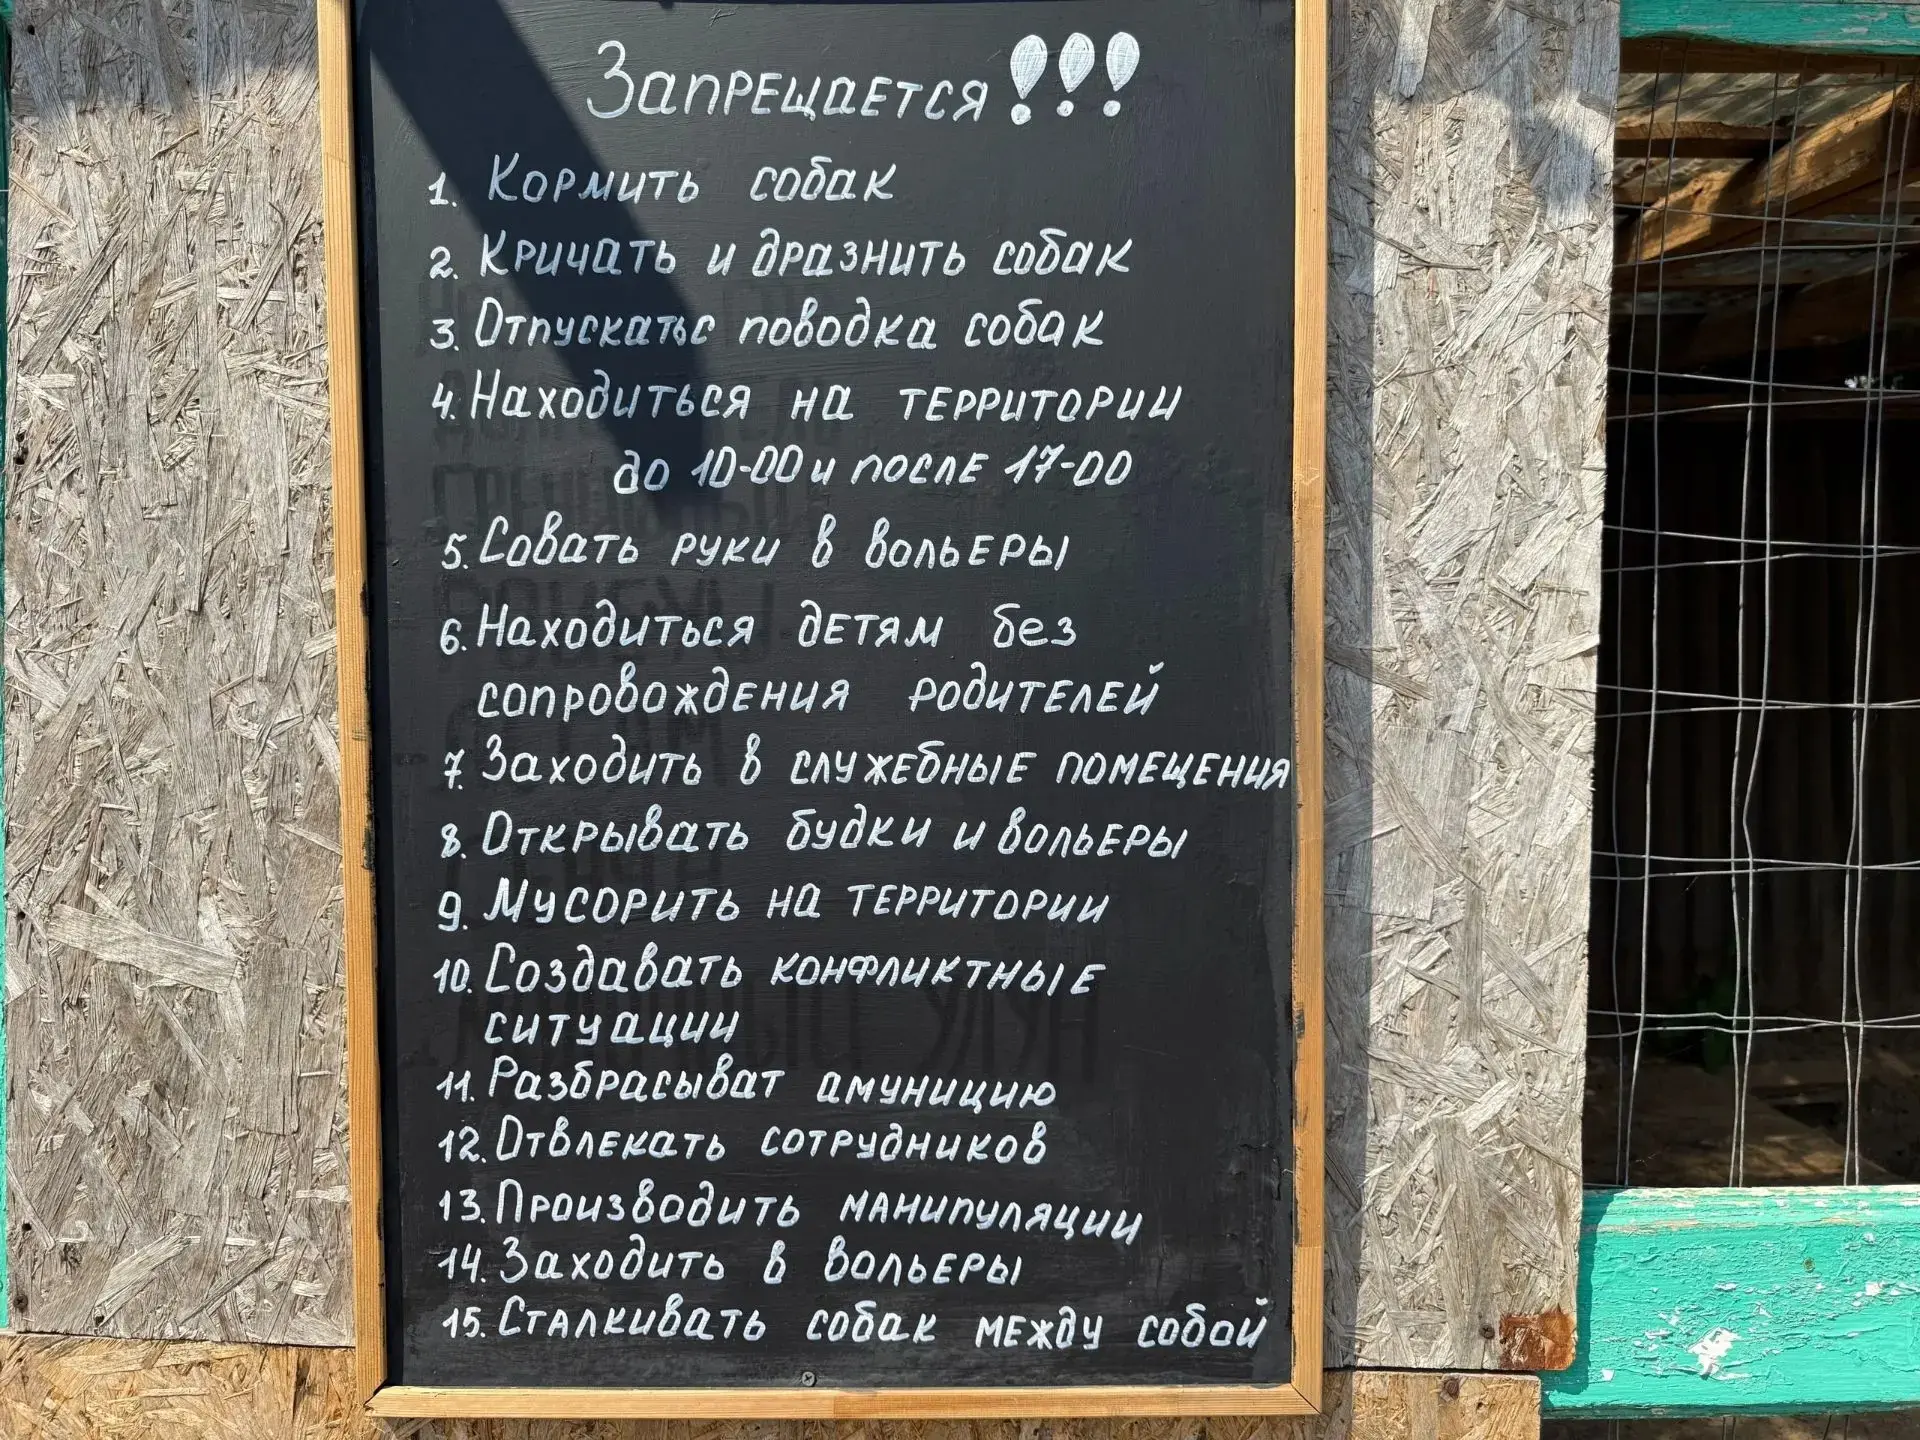 Запрещается!!!
1. Кормить собак
2. Кричать и дразнить собак
3. Отпускать с поводка собак
4. Находиться на территории
до 10-00 и после 17-00
5. Совать руки в вольеры
6. Находиться детям без
сопровождения родителей
7. Заходить в служебные помещения
8. Открывать будки и вольеры
9. Мусорить на территории
10. Создавать конфликтные
ситуации
11. Разбрасыват амуницию
12. Отвлекать сотрудников
13. Производить манипуляции
14. Заходить в вольеры
15. Сталкивать собак между собой